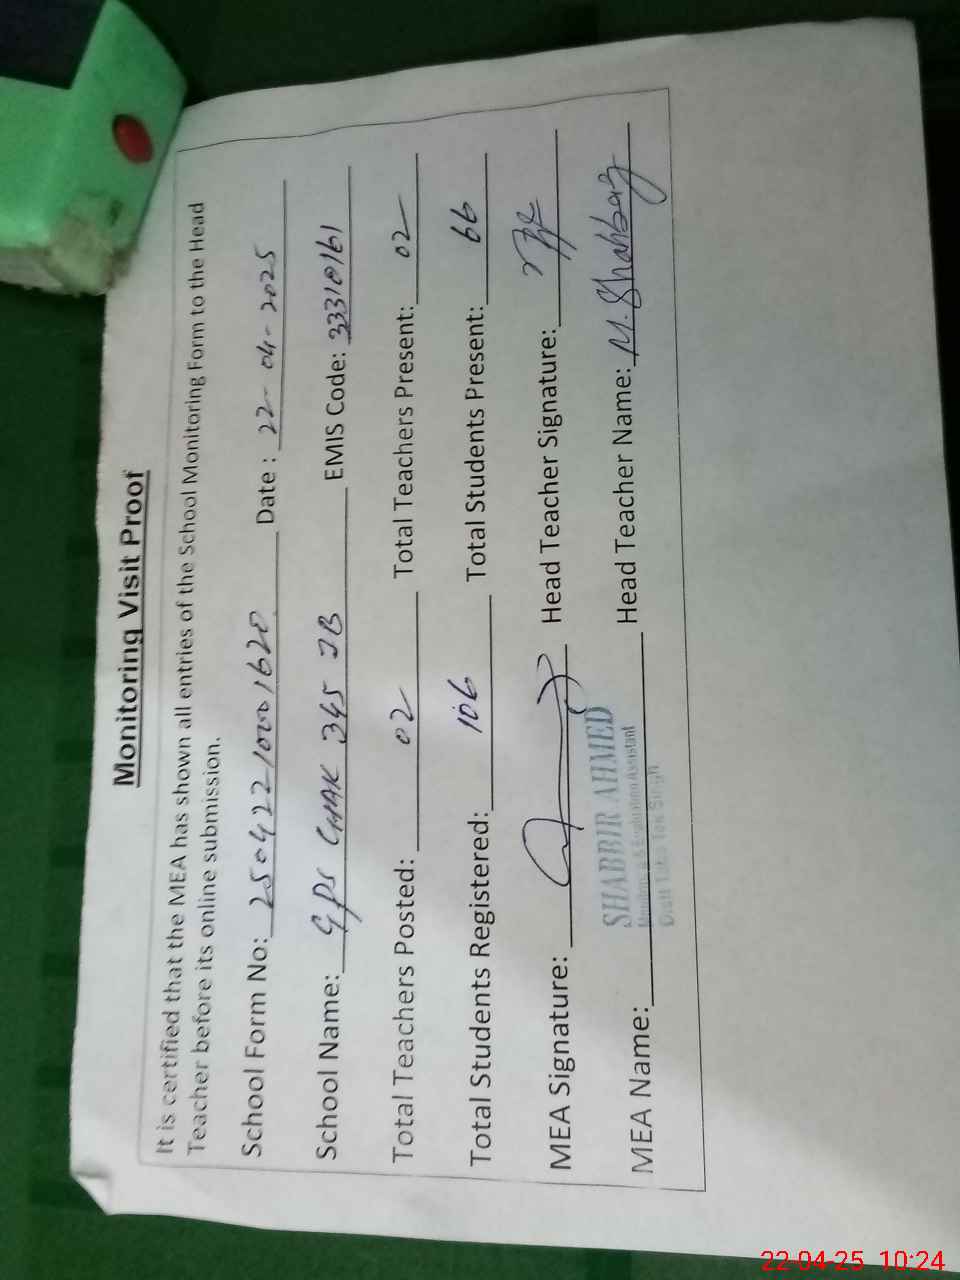 Monitoring Visit Proof
It is certified that the MEA has shown all entries of the School Monitoring Form to the Head
Teacher before its online submission.
School Form No: 25042210001620 Date : 22-04-2025
School Name: GPS CHAK 345 JB EMIS Code: 33310161
Total Teachers Posted: 02 Total Teachers Present: 02
Total Students Registered: 106 Total Students Present: 66
MEA Signature: Head Teacher Signature:
MEA Name: SHABBIR AHMED Head Teacher Name: M. Shahbaz
Monitoring & Evaluation Assistant
Distt Toba Tek Singh
22-04-25 10:24